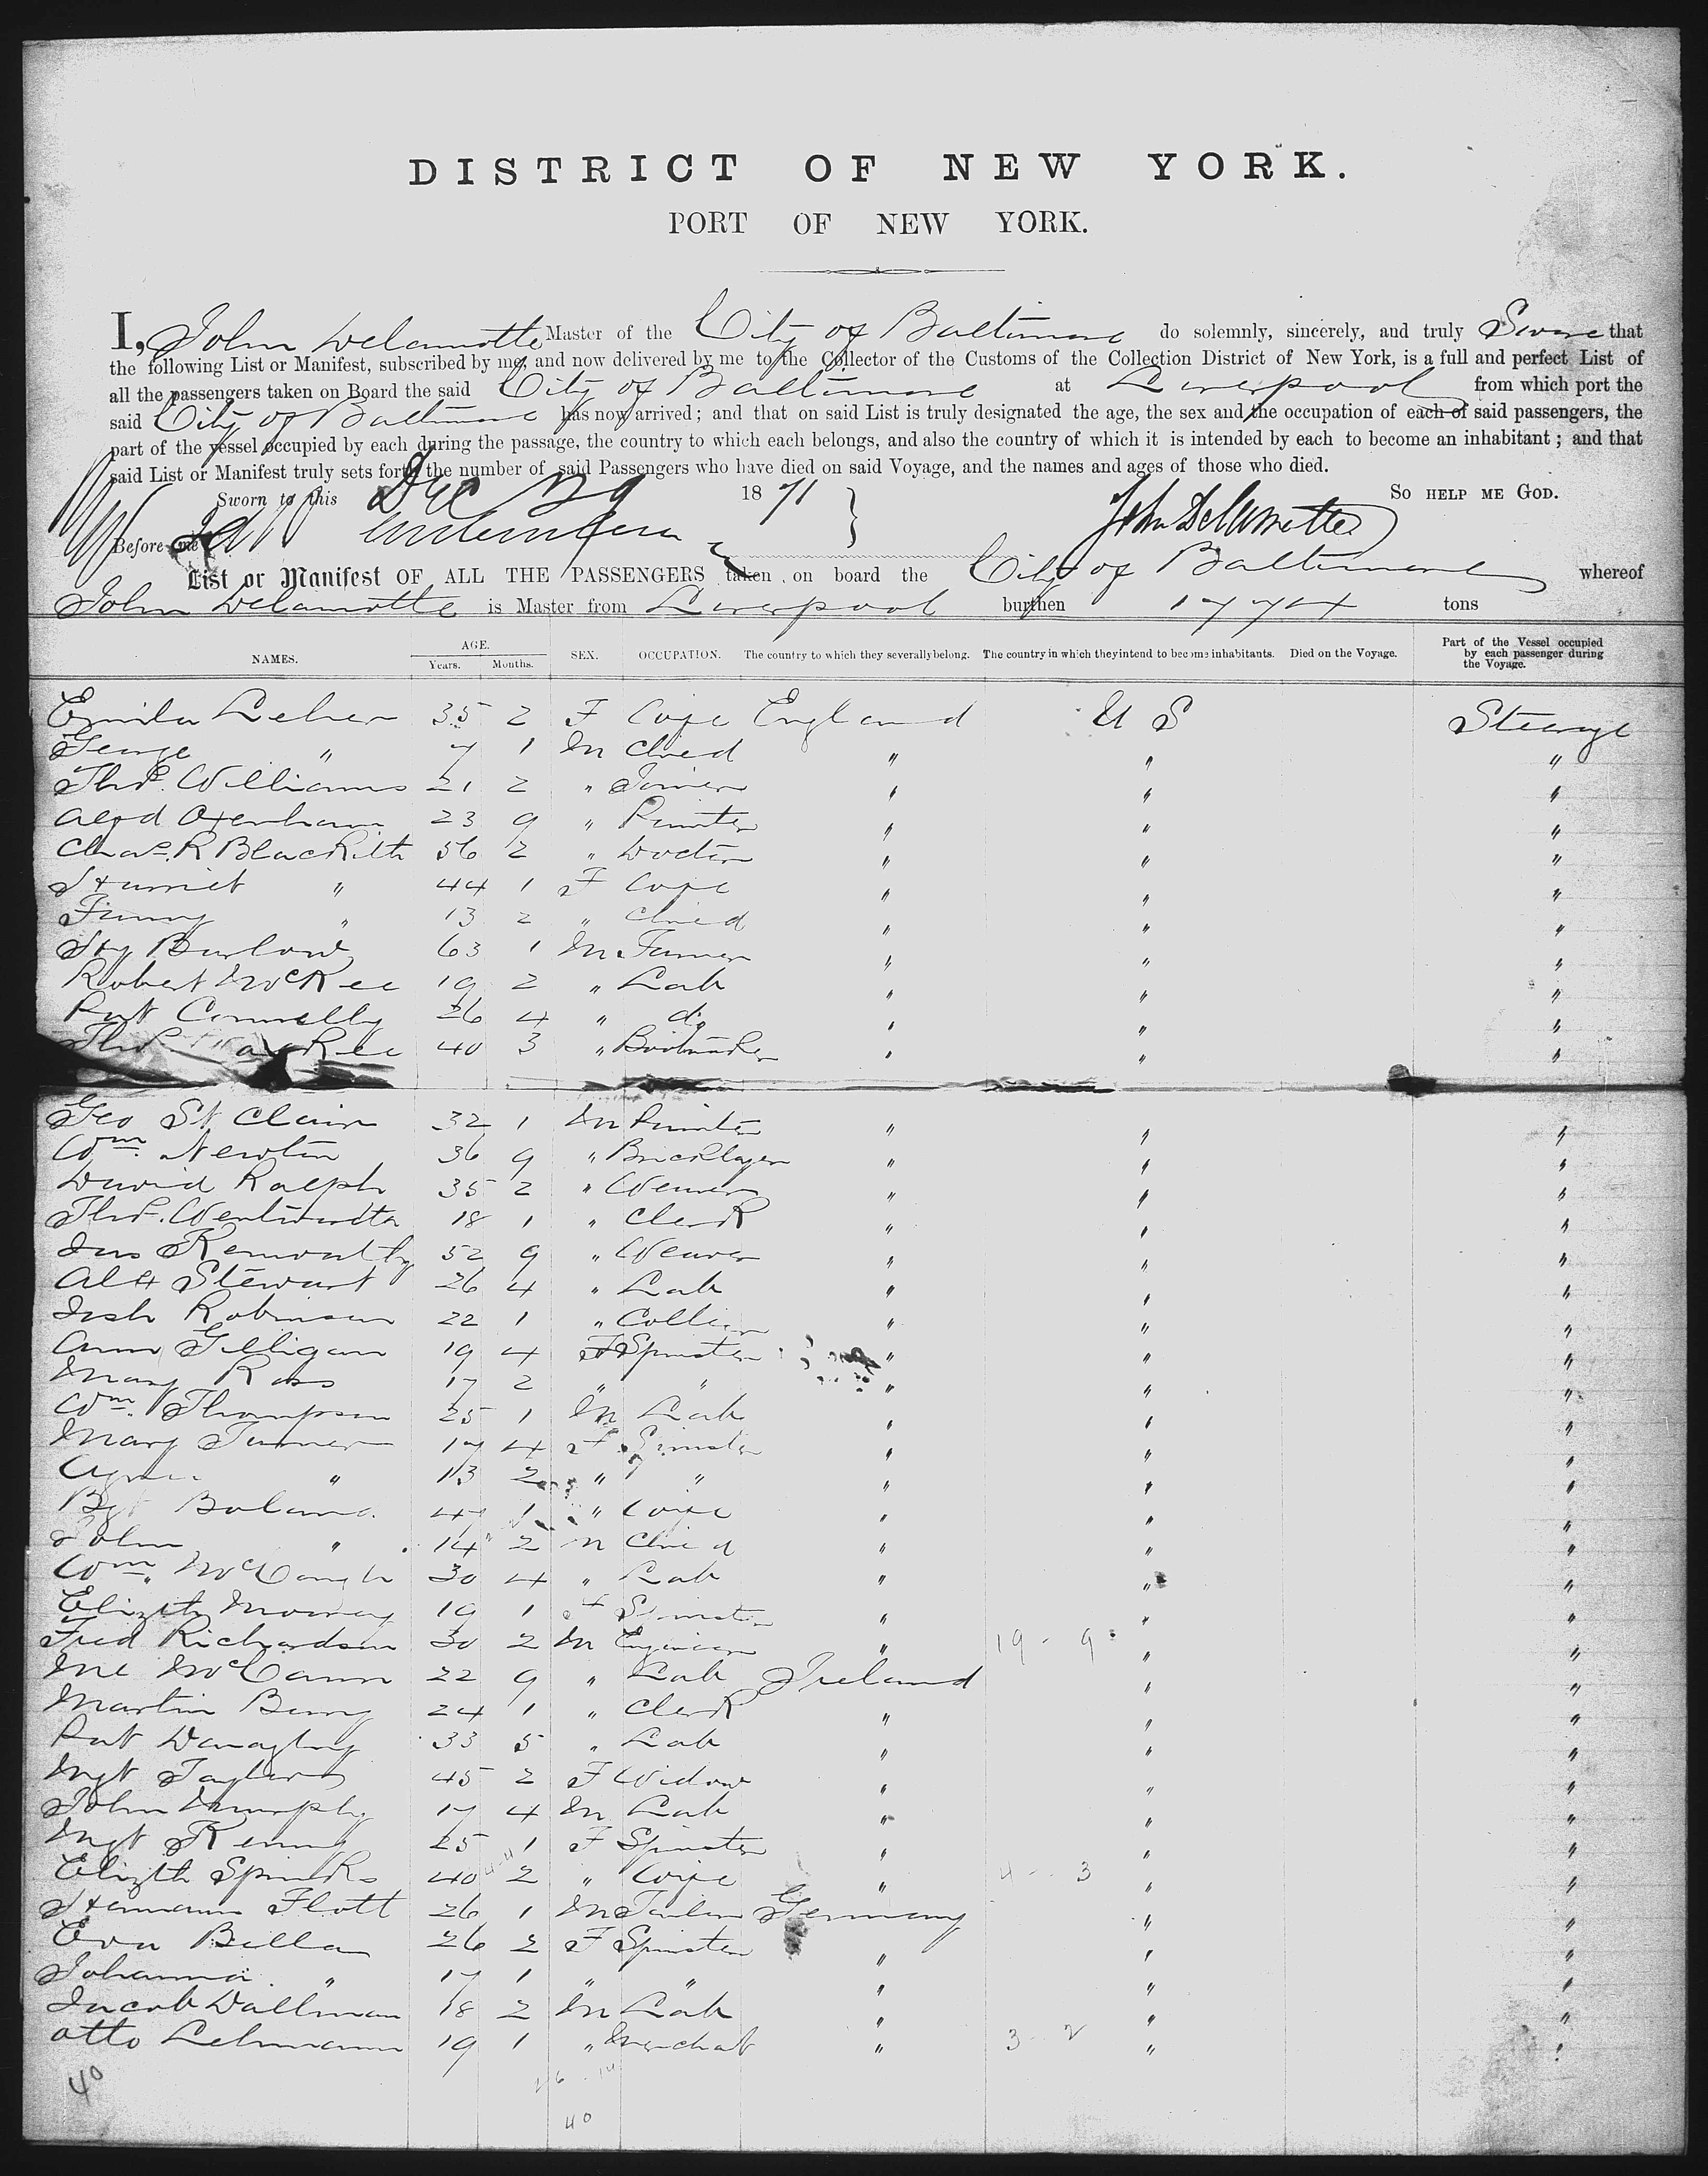 DISTRICT OF NEW YORK.
PORT OF NEW YORK.
I, John Delamotte Master of the City of Baltimore do solemnly, sincerely, and truly Swear that
the following List or Manifest, subscribed by me, and now delivered by me to the Collector of the Customs of the Collection District of New York, is a full and perfect List of
all the passengers taken on Board the said City of Baltimore at Liverpool from which port the
said City of Baltimore has now arrived; and that on said List is truly designated the age, the sex and the occupation of each of said passengers, the
part of the vessel occupied by each during the passage, the country to which each belongs, and also the country of which it is intended by each to become an inhabitant; and that
said List or Manifest truly sets forth the number of said Passengers who have died on said Voyage, and the names and ages of those who died.
Sworn to this Dec 29 1871 So HELP ME GOD.
Before me John Delamotte
List or Manifest OF ALL THE PASSENGERS taken on board the City of Baltimore whereof
John Delamotte is Master from Liverpool burthen 1774 tons
NAMES. AGE. Years. Months. SEX. OCCUPATION. The country to which they severally belong. The country in which they intend to become inhabitants. Died on the Voyage. Part of the Vessel occupied by each passenger during the Voyage.
35 2 F Wife England U S Steerage
George " 7 1 M Child " " "
Thos. Williams 21 2 " Joiner " " "
Alfd Oxenham 23 9 " " " "
Chas. R Blackith 56 2 " Doctor " " "
Harriet " 44 1 F Wife " " "
Fanny " 13 2 " Child " " "
Hy Barlow 63 1 M Farmer " " "
Robert McKee 19 2 " Lab " " "
Pat Connelly 26 4 " do " " "
Thos 40 3 " Bootmaker " " "
Geo St Clair 32 1 M " " "
Wm. Newton 36 9 " Bricklayer " " "
David Ralph 35 2 " Weaver " " "
Thos. Wentworth 18 1 " Clerk " " "
Jas Kenworthy 52 9 " Weaver " " "
Alex Stewart 26 4 " Lab " " "
Josh Robinson 22 1 " Collier " " "
Ann Gilligan 19 4 F Spinster " " "
Mary Ross 17 2 " " " " "
Wm. Thompson 25 1 M Lab " " "
Mary Turner 17 4 F Spinster " " "
Agnes " 13 2 " " " " "
Bgt Boland 47 1 " Wife " " "
John " 14 2 M Child " " "
Wm. 30 4 " Lab " " "
Elizth 19 1 F Spinster " " "
Fred Richardson 30 2 M Engineer " 19 - 9 " "
McCann 22 9 " Lab Ireland " "
Martin 24 1 " Clerk " " "
Pat 33 5 " Lab " " "
Mgt Taylor 45 2 F Widow " " "
John Murphy 17 4 M Lab " " "
Mgt Kenny 25 1 F Spinster " " "
Elizth Spinks 40 2 " Wife " 4 - 3 " "
Hermann Flott 26 1 M Tailor Germany " "
Eva Bella 26 2 F Spinster " " "
Johanna " 17 1 " " " " "
Jacob Dallman 18 2 M Lab " " "
Otto Lehmann 19 1 " Merchat " 3 - 2 " "
40
26 . 14
40